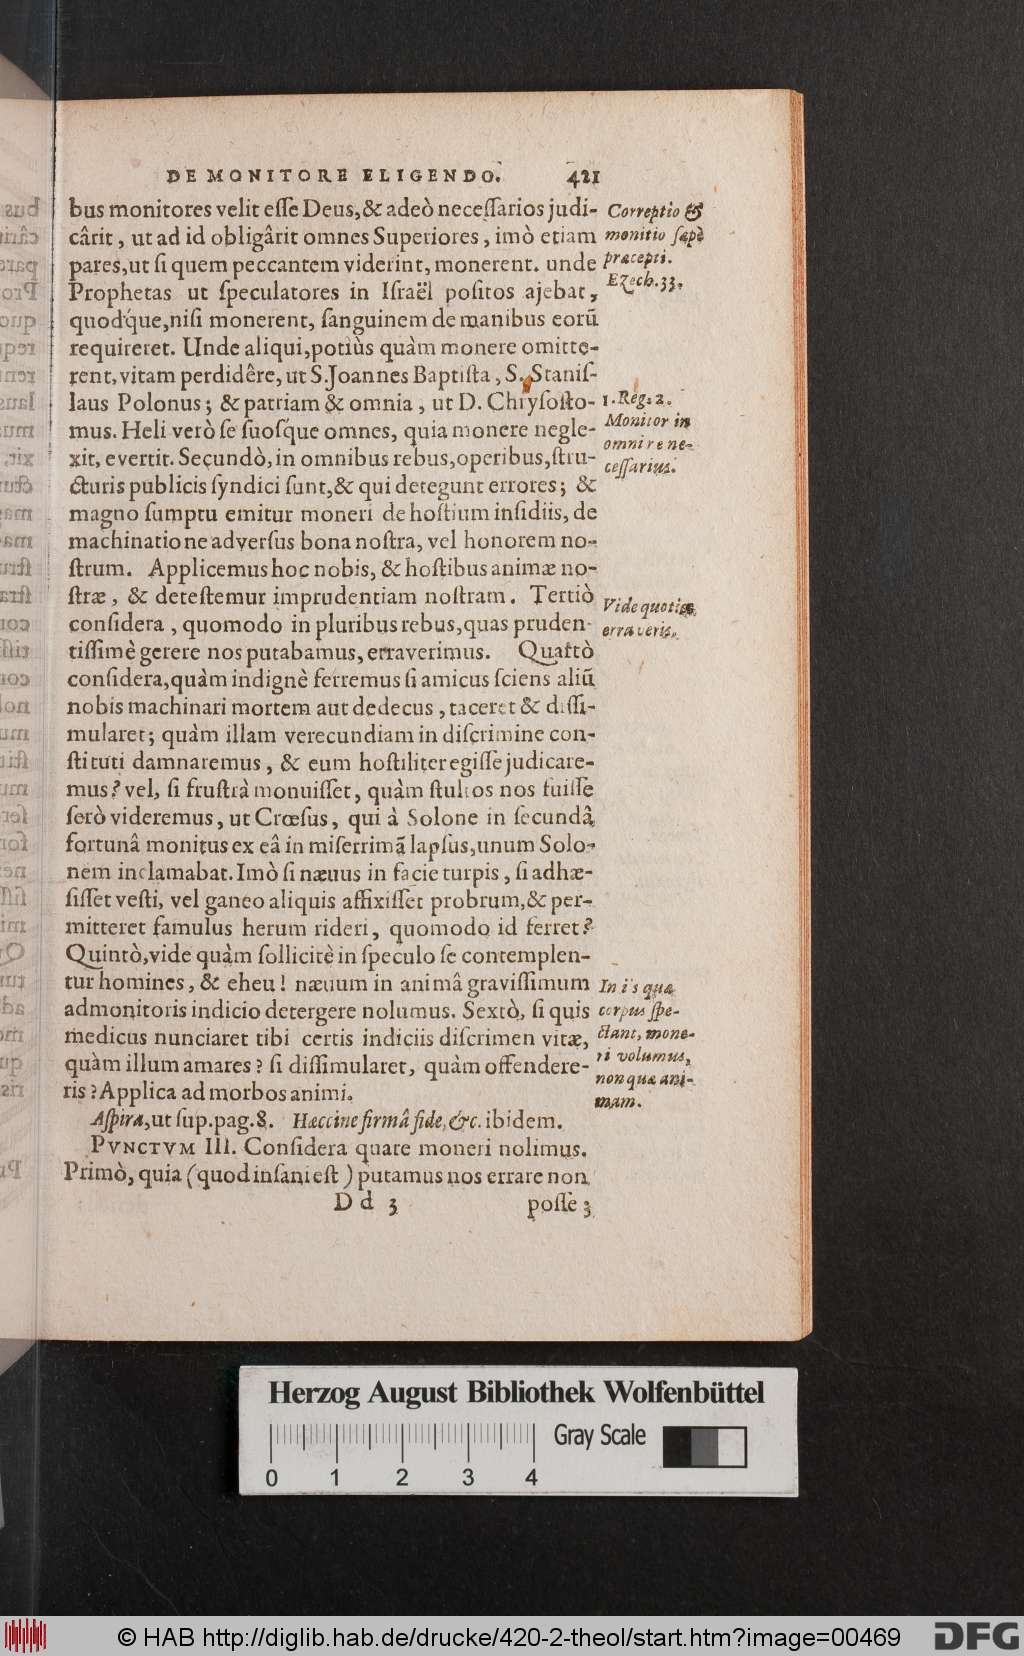 DE MONITORE ELIGENDO. 421
bus monitores velit eſſe Deus,& adeò neceſſarios judi-
cârit, ut ad id obligârit omnes Superiores, imò etiam
pares,ut ſi quem peccantem viderint, monerent. unde
Prophetas ut ſpeculatores in Iſraël poſitos ajebat,
quodq́ue,niſi monerent, ſanguinem de manibus eorū
requireret. Unde aliqui,potiùs quàm monere omitte-
rent, vitam perdidêre, ut S.Joannes Baptiſta, S. Staniſ-
laus Polonus; & patriam & omnia, ut D. Chryſoſto-
mus. Heli verò ſe ſuoſq́ue omnes, quia monere negle-
xit, evertit. Secundò, in omnibus rebus,operibus,ſtru-
cturis publicis ſyndici ſunt,& qui detegunt errores; &
magno ſumptu emitur moneri de hoſtium inſidiis, de
machinatione adverſus bona noſtra, vel honorem no-
ſtrum. Applicemus hoc nobis, & hoſtibus animæ no-
ſtræ, & deteſtemur imprudentiam noſtram. Tertiò
conſidera, quomodo in pluribus rebus,quas pruden-
tiſſimè gerere nos putabamus, erraverimus. Quartò
conſidera,quàm indignè ferremus ſi amicus ſciens aliū
nobis machinari mortem aut dedecus, taceret & diſſi-
mularet; quàm illam verecundiam in diſcrimine con-
ſtituti damnaremus, & eum hoſtiliter egiſſe judicare-
mus? vel, ſi fruſtrà monuiſſet, quàm ſtultos nos fuiſſe
ſerò videremus, ut Crœſus, qui à Solone in ſecundâ
fortunâ monitus ex eâ in miſerrimā lapſus,unum Solo-
nem inclamabat. Imò ſi nævus in facie turpis, ſi adhæ-
ſiſſet veſti, vel ganeo aliquis affixiſſet probrum,& per-
mitteret famulus herum rideri, quomodo id ferret?
Quintò,vide quàm ſollicitè in ſpeculo ſe contemplen-
tur homines, & eheu! nævum in animâ graviſſimum
admonitoris indicio detergere nolumus. Sextò, ſi quis
medicus nunciaret tibi certis indiciis diſcrimen vitæ,
quàm illum amares? ſi diſſimularet, quàm offendere-
ris? Applica ad morbos animi.
Aſpira,ut ſup.pag.8. Hæccine firmâ fide, &c. ibidem.
PVNCTVM III. Conſidera quare moneri nolimus.
Primò, quia (quod inſani eſt) putamus nos errare non
Dd 3 poſſe;
Correptio &
monitio ſæpè
præcepti.
Ezech.33.
1.Reg.2.
Monitor in
omni re ne-
ceſſarius.
Vide quoties
erraveris.
In iis quæ
corpus ſpe-
ctant, mone-
ri volumus,
non quæ ani-
mam.
Herzog August Bibliothek Wolfenbüttel
Gray Scale
0 1 2 3 4
© HAB http://diglib.hab.de/drucke/420-2-theol/start.htm?image=00469
DFG